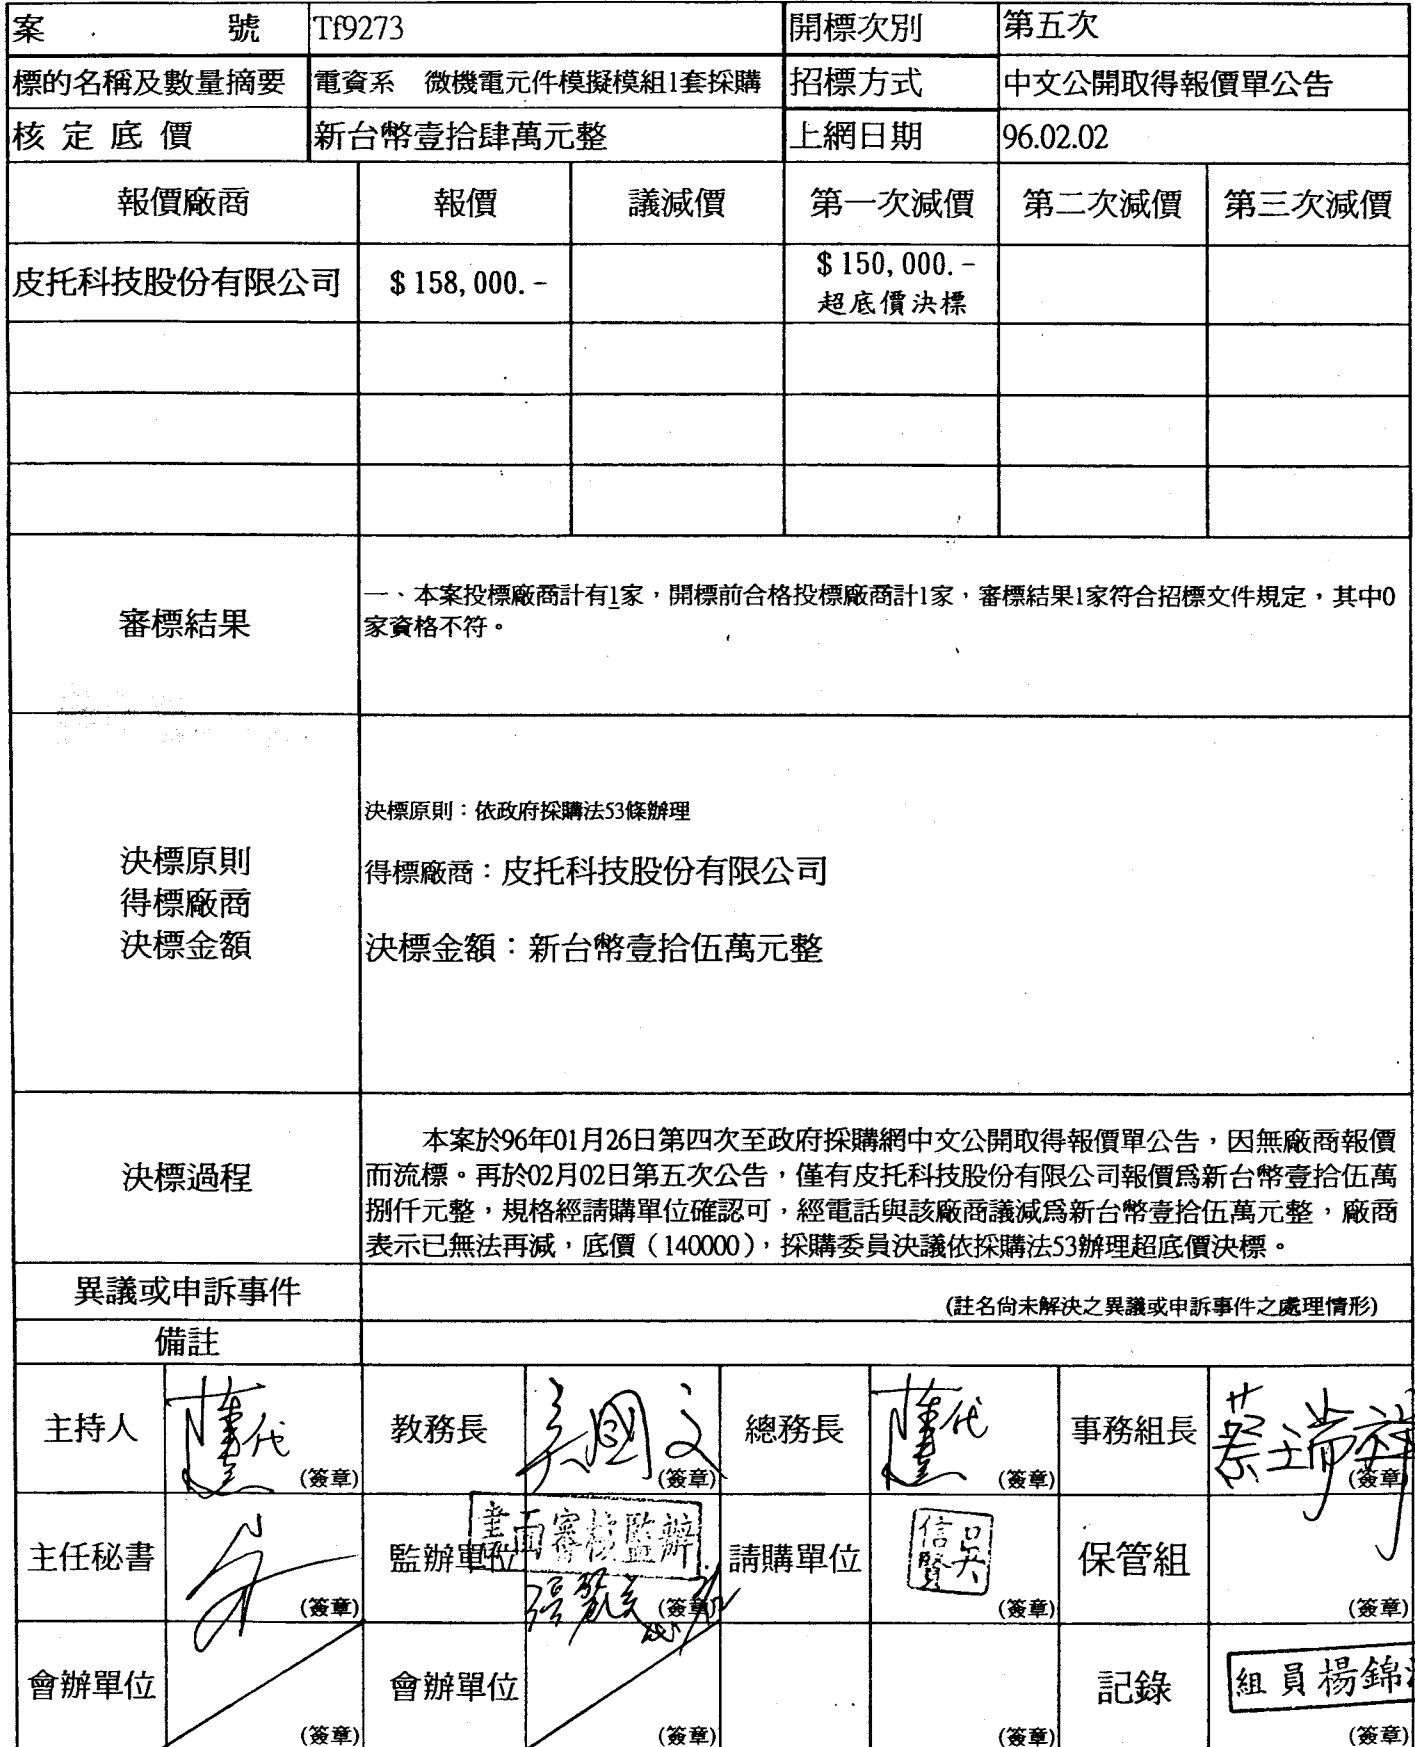 案 號 Tf9273 開標次別 第五次
標的名稱及數量摘要 電資系 微機電元件模擬模組1套採購 招標方式 中文公開取得報價單公告
核定底價 新台幣壹拾肆萬元整 上網日期 96.02.02
報價廠商 報價 議減價 第一次減價 第二次減價 第三次減價
皮托科技股份有限公司 $158,000.- $150,000.-
超底價決標
審標結果
一、本案投標廠商計有1家，開標前合格投標廠商計1家，審標結果1家符合招標文件規定，其中0
家資格不符。
決標原則
得標廠商
決標金額
決標原則：依政府採購法53條辦理
得標廠商：皮托科技股份有限公司
決標金額：新台幣壹拾伍萬元整
決標過程
本案於96年01月26日第四次至政府採購網中文公開取得報價單公告，因無廠商報價
而流標。再於02月02日第五次公告，僅有皮托科技股份有限公司報價爲新台幣壹拾伍萬
捌仟元整，規格經請購單位確認可，經電話與該廠商議減爲新台幣壹拾伍萬元整，廠商
表示已無法再減，底價（140000），採購委員決議依採購法53辦理超底價決標。
異議或申訴事件 (註名尚未解決之異議或申訴事件之處理情形)
備註
主持人 代 (簽章) 教務長 吳國文 (簽章) 總務長 代 (簽章) 事務組長 蔡瑞 (簽章)
主任秘書 (簽章) 監辦單位 書面審核監辦 (簽章) 請購單位 吳信賢 (簽章) 保管組 (簽章)
會辦單位 (簽章) 會辦單位 (簽章) (簽章) 記錄 組員楊錦 (簽章)